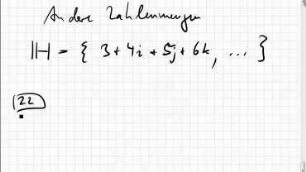 Andere Zahlenmengen
ℍ = { 3 + 4i + 5j + 6k, ... }
22